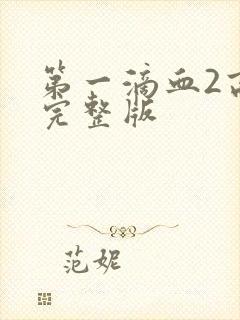 第一滴血2
完整版
范妮